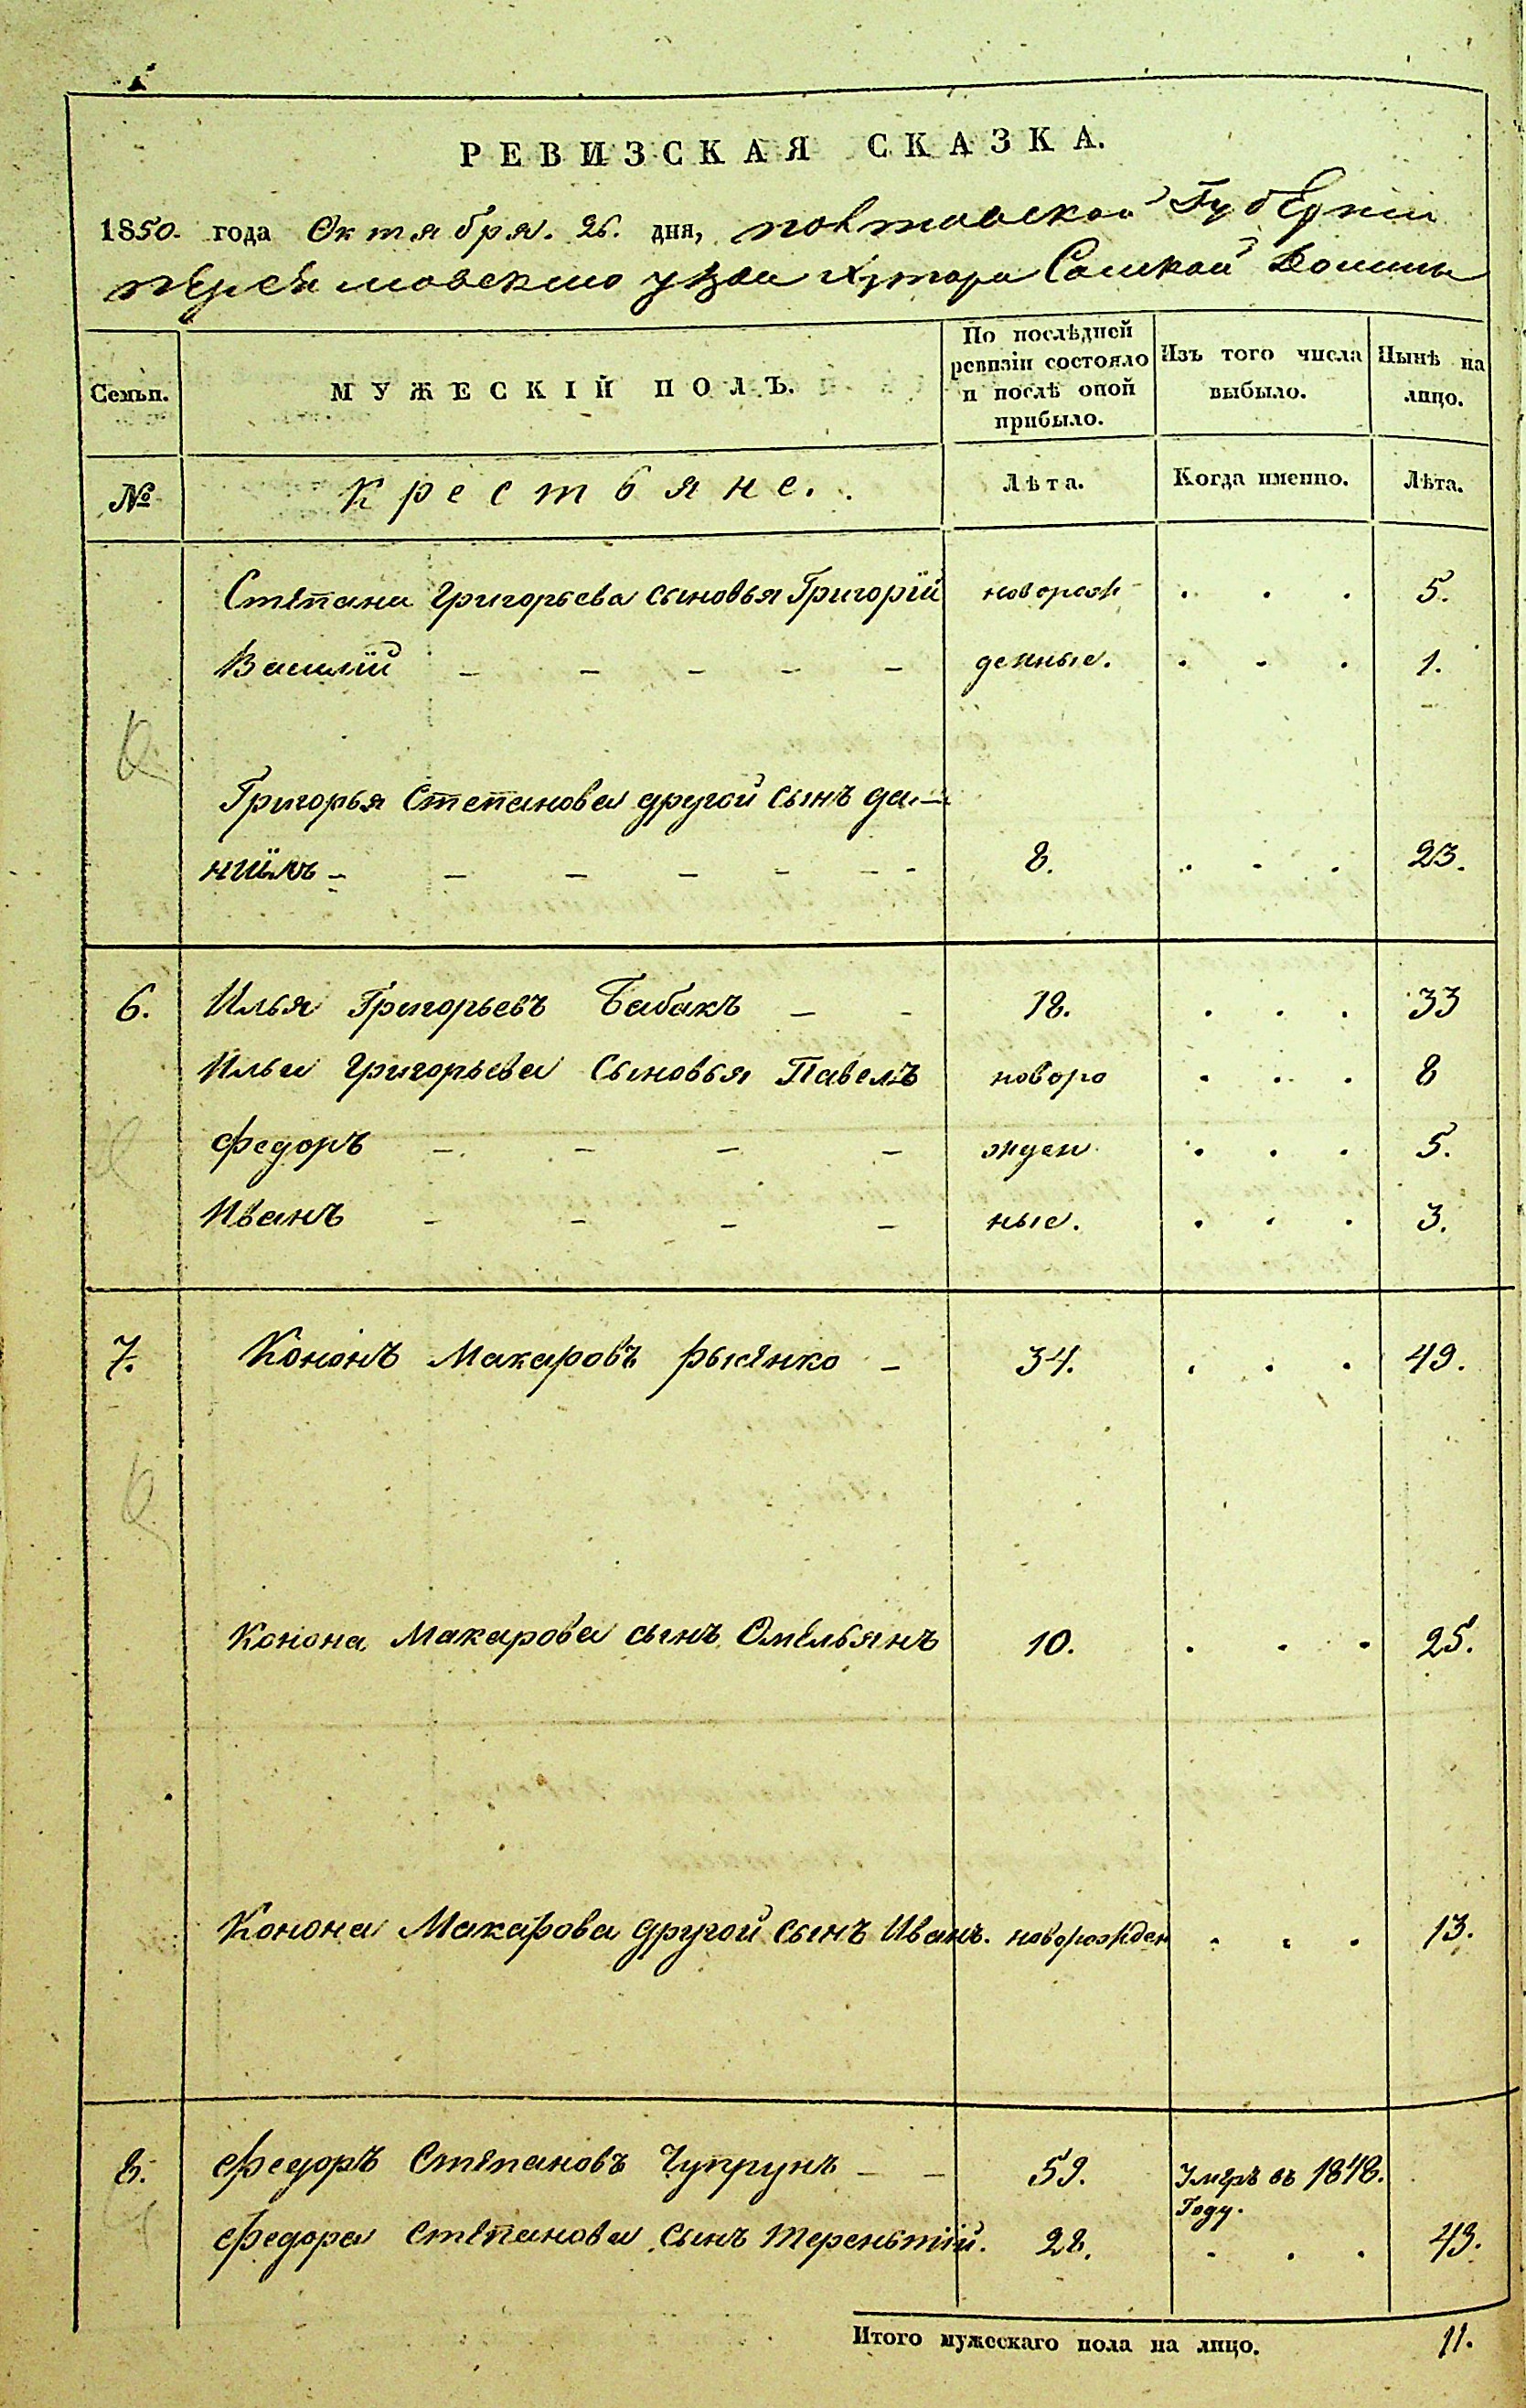 РЕВИЗСКАЯ СКАЗКА.
1850. года Октября. 26. дня, Полтавской Губерніи
хутора Долины
Семьи. МУЖЕСКІЙ ПОЛЪ. По послѣдней ревизіи состояло и послѣ оной прибыло. Изъ того числа выбыло. Нынѣ на лицо.
№ Крестьяне. Лѣта. Когда именно. Лѣта.
Степана Григорьева сыновья Григорій новорож- . . . 5.
Василій - - - - - денные. . . . 1.
Григорья Степанова другой сынъ Да-
ніилъ - - - - - - - 8. . . . 23.
6. Илья Григорьевъ Бабакъ - - 18. . . . 33
Ильи Григорьева Сыновья Павелъ новоро . . . 8
Федоръ - - - - жден . . . 5.
Иванъ - - - - ные. . . . 3.
7. Кононъ Макаровъ - 34. . . . 49.
Конона Макарова сынъ Омельянъ 10. . . . 25.
Конона Макарова другой сынъ Иванъ. новорожден . . . 13.
8. Федоръ Степановъ Чупрунъ - - 59. Умеръ въ 1848.
Году.
Федора Степанова сынъ Терентій. 28. . . . 43.
Итого мужескаго пола на лицо. 11.